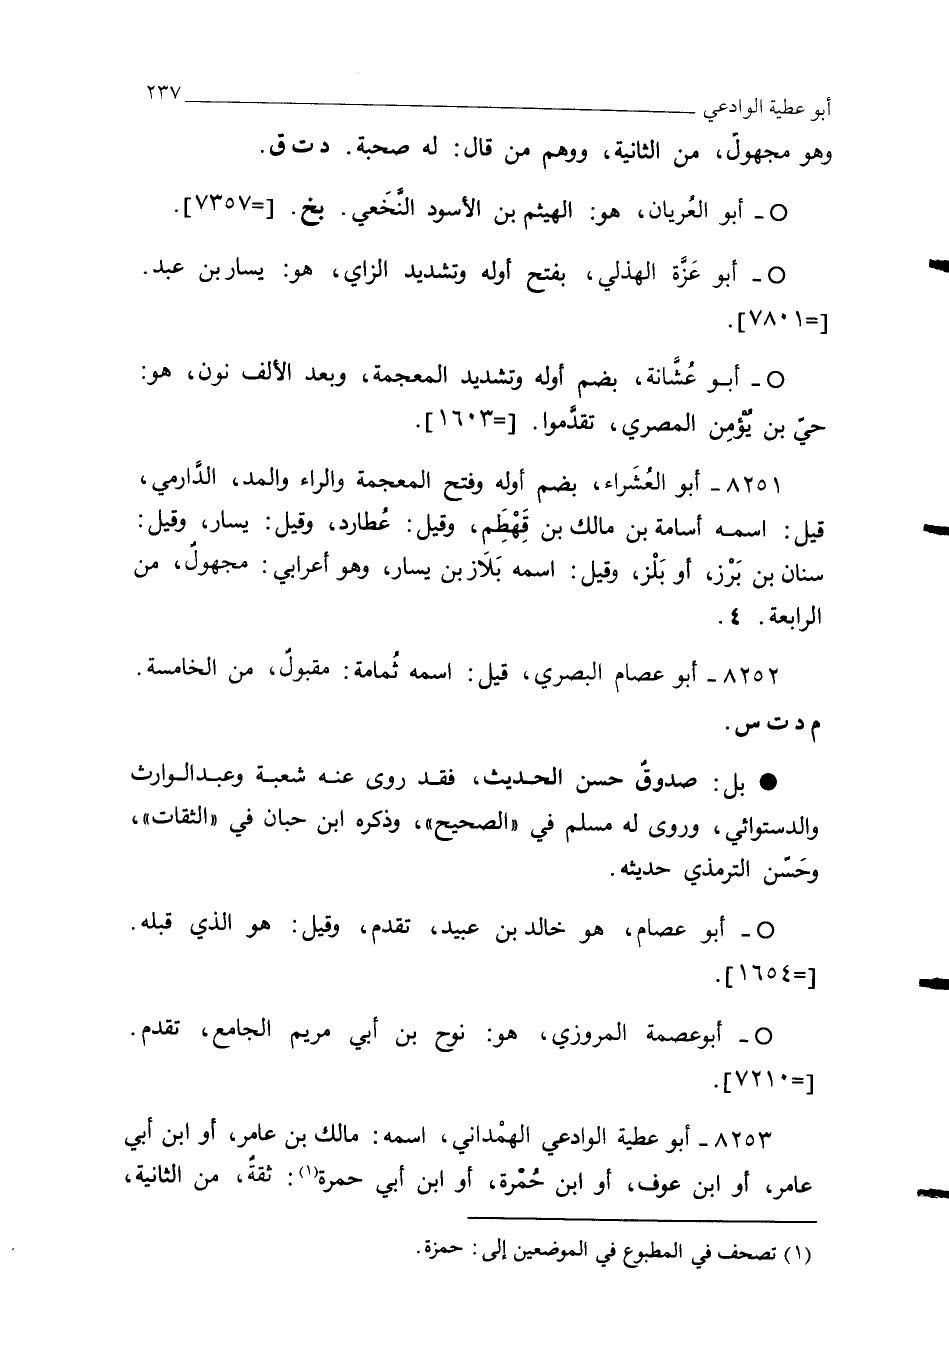 أبو عطية الوادعي ٢٣٧
وهو مجهولٌ، من الثانية، ووهم من قال: له صحبة. د ت ق.
○ ـ أبو العُريان، هو: الهيثم بن الأسود النَّخَعي. بخ. [=٧٣٥٧].
○ ـ أبو عَزَّة الهذلي، بفتح أوله وتشديد الزاي، هو: يسار بن عبد.
[=٧٨٠١].
○ ـ أبو عُشَّانة، بضم أوله وتشديد المعجمة، وبعد الألف نون، هو:
حيّ بن يُؤْمِن المصري، تقدَّموا. [=١٦٠٣].
٨٢٥١ ـ أبو العُشَراء، بضم أوله وفتح المعجمة والراء والمد، الدَّارمي،
قيل: اسمه أسامة بن مالك بن قَهْطَم، وقيل: عُطارد، وقيل: يسار، وقيل:
سنان بن بَرْز، أو بَلْز، وقيل: اسمه بَلَاز بن يسار، وهو أعرابي: مجهولٌ، من
الرابعة. ٤.
٨٢٥٢ ـ أبو عصام البصري، قيل: اسمه ثُمامة: مقبولٌ، من الخامسة.
م د ت س.
● بل: صدوقٌ حسن الحديث، فقد روى عنه شعبة وعبدالوارث
والدستوائي، وروى له مسلم في «الصحيح»، وذكره ابن حبان في «الثقات»،
وحَسّن الترمذي حديثه.
○ ـ أبو عصام، هو خالد بن عبيد، تقدم، وقيل: هو الذي قبله.
[=١٦٥٤].
○ ـ أبوعصمة المروزي، هو: نوح بن أبي مريم الجامع، تقدم.
[=٧٢١٠].
٨٢٥٣ ـ أبو عطية الوادعي الهمْداني، اسمه: مالك بن عامر، أو ابن أبي
عامر، أو ابن عوف، أو ابن حُمْرة، أو ابن أبي حمرة(١): ثقةٌ، من الثانية،
(١) تصحف في المطبوع في الموضعين إلى: حمزة.